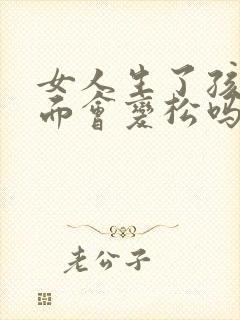 女人生了孩
而会变松吗
老公子